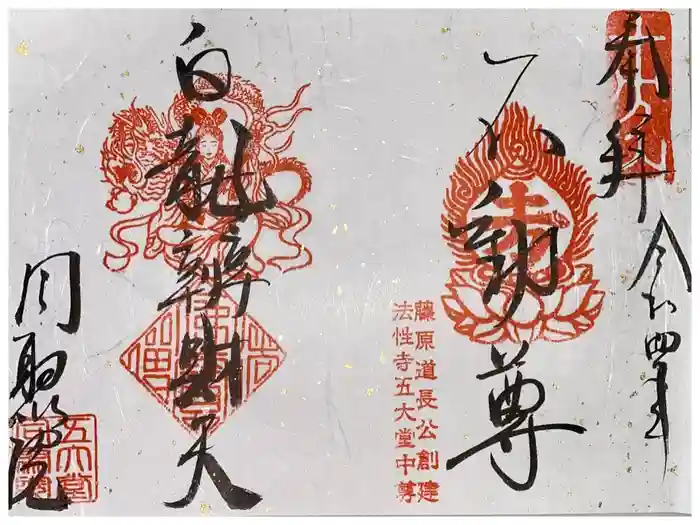 奉拝
令和四年
不動尊
藤原道長公創建
法性寺五大堂中尊
白龍辨財天
同聚院